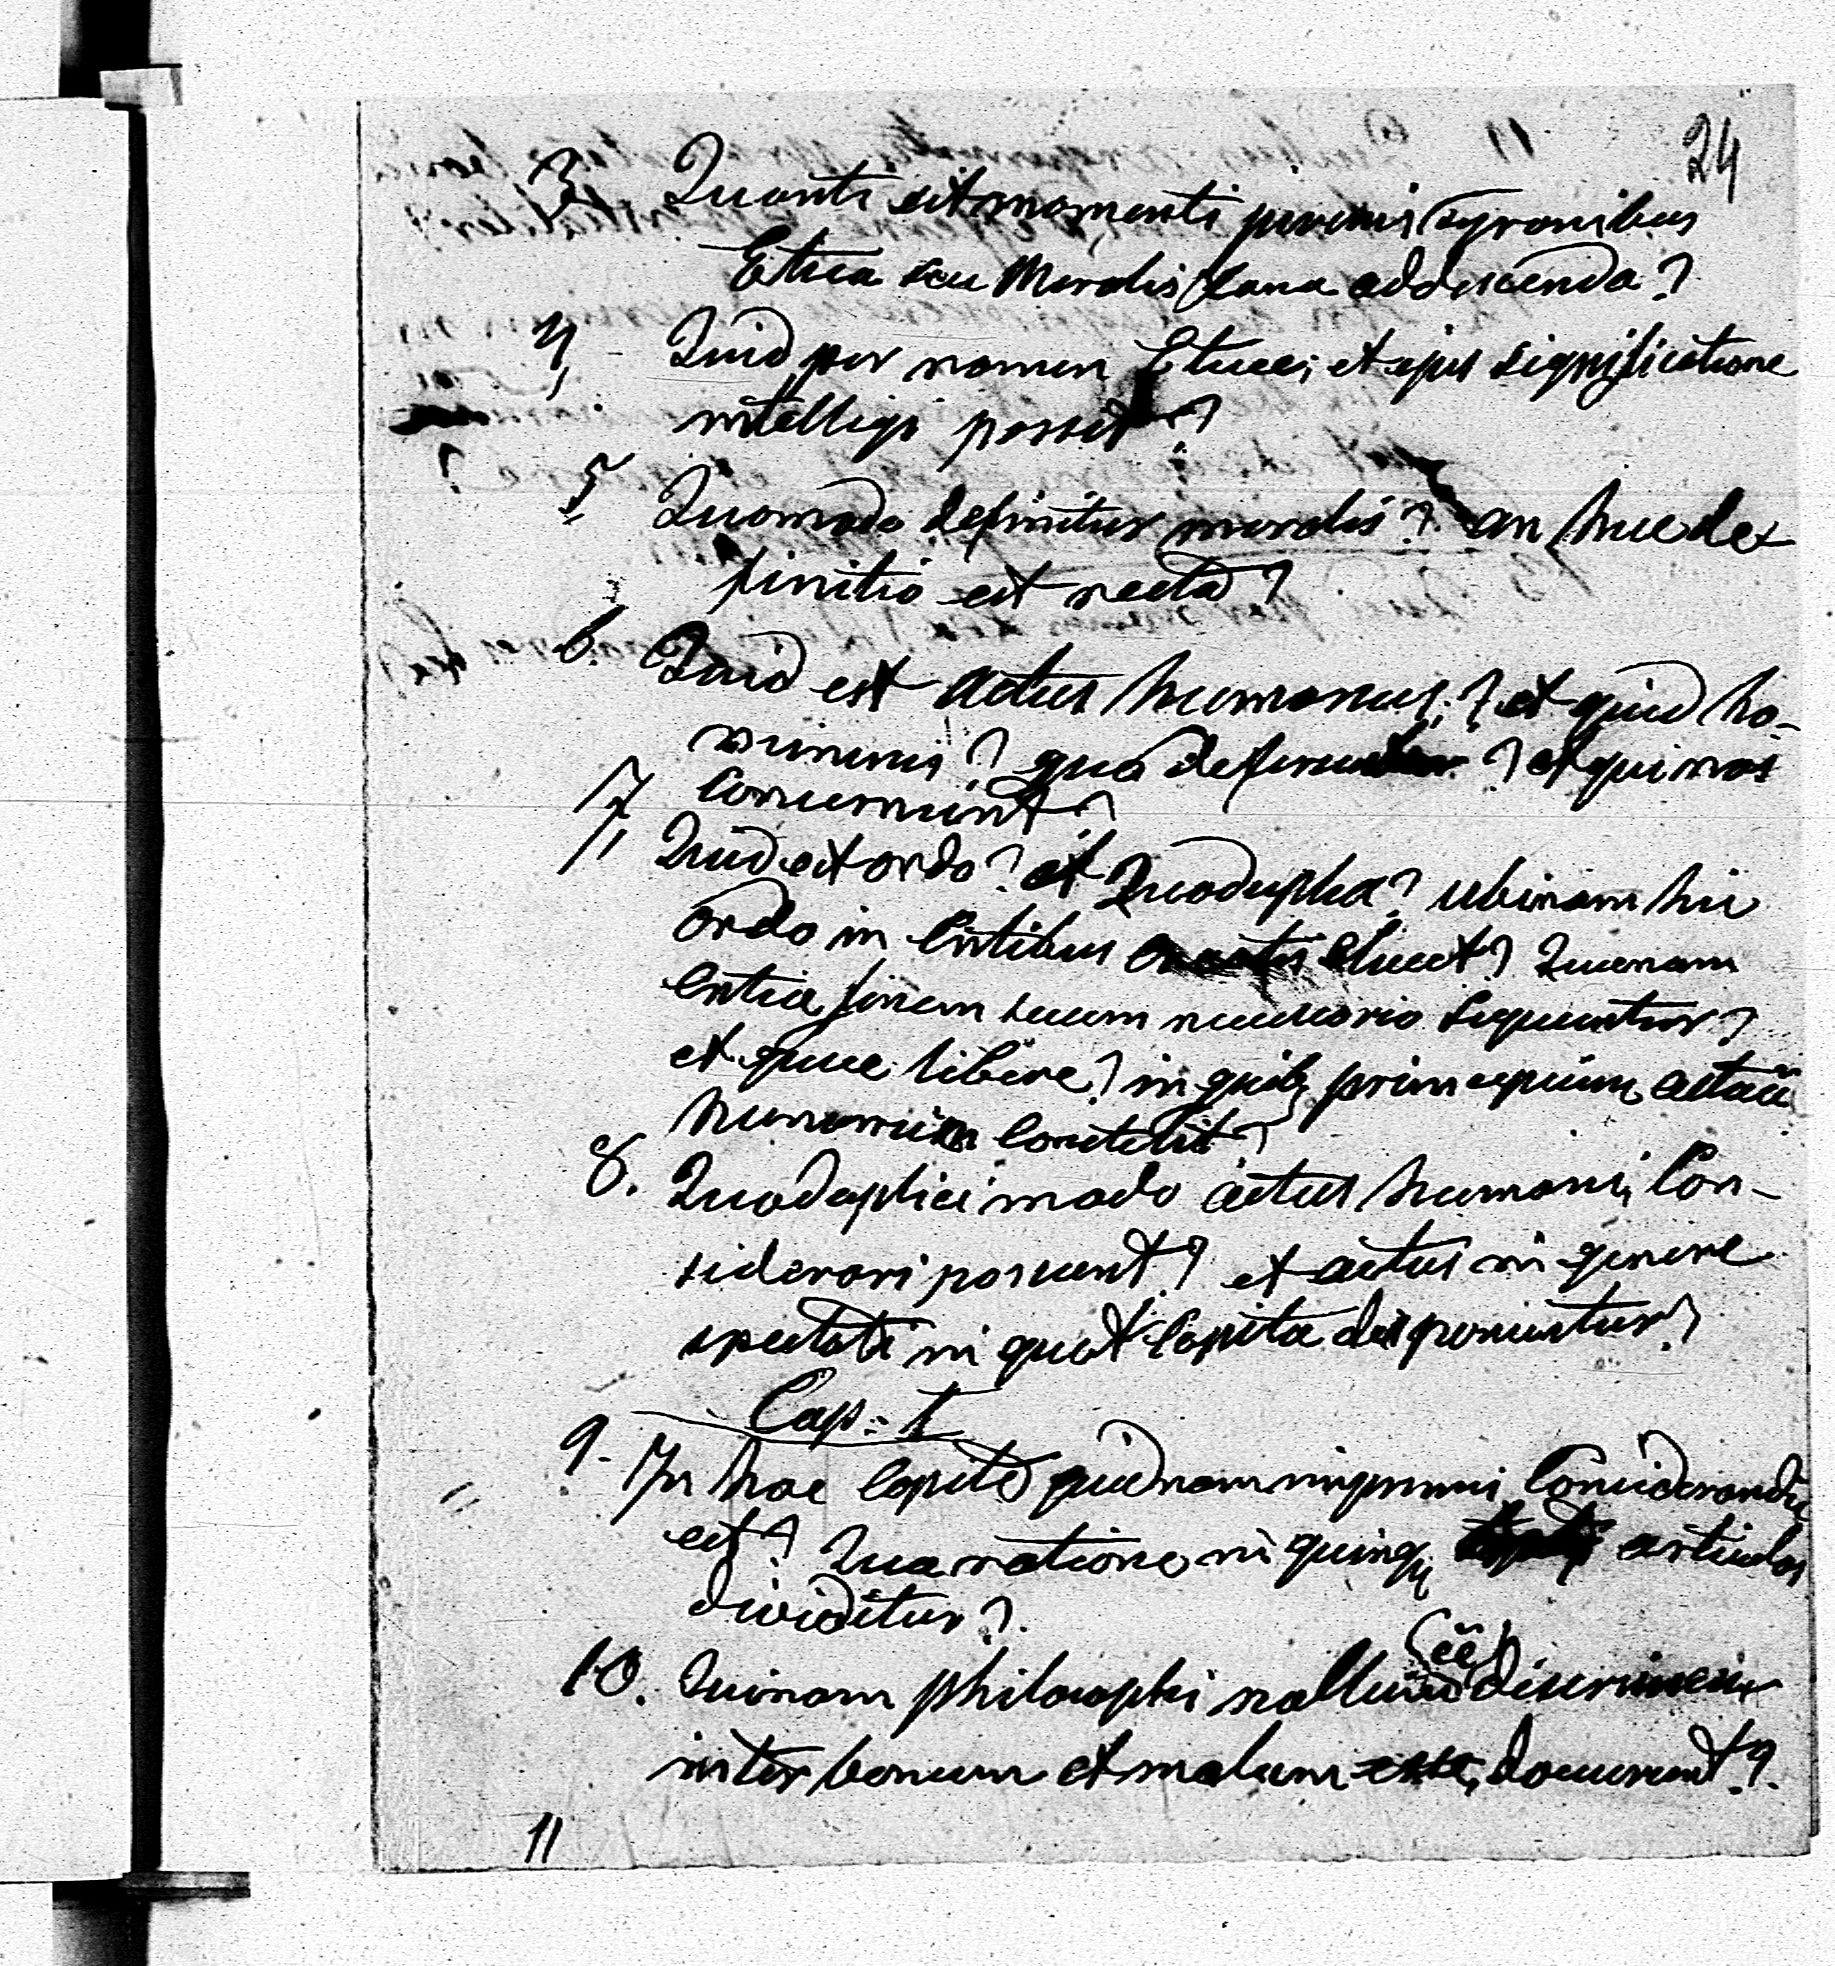 24
3. Quanti sit momenti juvenis tyronibus
Ethica seu Moralis sana addiscenda?
4, Quid per nomen Ethices, et ejus significatione
intelligi possit?
5 Quomodo definitur moralis? an hæc de-
finitio est recta?
6. Quid est actus humanus? et quid ho-
minis? qua ? et qui nos
concernunt?
7 Quid est ordo? et Quoduplex? ubinam hic
ordo in Entibus elucet? Quænam
Entia finem suum necessario sequuntur?
et quæ libere? in quibq principium actuū
humanum consistit?
8. Quoduplici modo actus humani, Con-
siderari possunt? et actus in genere
spectati in quot Capita disponuntur?
Cap: I
9. In hoc Capite quidnam inprimis Considerandū
est? Qua ratione in quinq articulos
dividitur?
(eē)
10. Quinam philosophi nullum discrimen
inter bonum et malum esse, docuerunt?
11